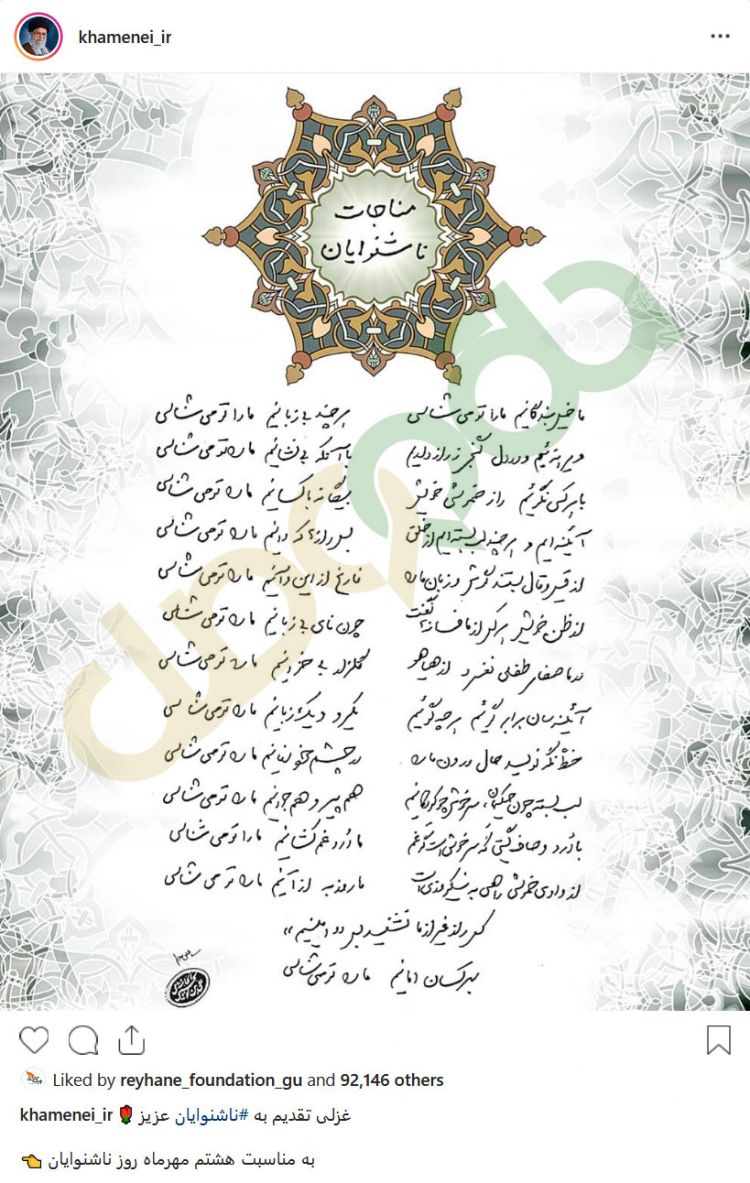 khamenei_ir
مناجات
ناشنوایان
ما خیل بندگانیم ما را تو می‌شناسی هر چند بی‌زبانیم ما را تو می‌شناسی
ویرانه‌ئیم و در دل گنجی ز راز داریم با آنکه بی‌نشانیم ما را تو می‌شناسی
با هر کسی نگوئیم راز خموشی خویش بیگانه با کسانیم ما را تو می‌شناسی
آئینه‌ایم و هر چند لب بسته‌ایم از خلق بس رازها که دانیم ما را تو می‌شناسی
از قیل و قال بستند گوش و زبان ما را فارغ از این و آنیم ما را تو می‌شناسی
از ظن خویش هر کس از ما فسانه‌ها گفت چون نای بی‌زبانیم ما را تو می‌شناسی
در ما صفای طفلی نفسرد از هیاهو گلزار بی‌خزانیم ما را تو می‌شناسی
آئینه‌سان برابر گوئیم هر چه گوئیم یکرو و یک زبانیم ما را تو می‌شناسی
خطّ نگه نویسد حال درون ما را در چشم خود نهانیم ما را تو می‌شناسی
لب بسته چون حکیمان، سرخوش چو کودکانیم هم پیر و هم جوانیم ما را تو می‌شناسی
با دُرد و صاف گیتی گه سرخوش است گه غم ما دُرد غم کشانیم ما را تو می‌شناسی
از وادی خموشی راهی به نیکروزی است ما روزبه از آنیم ما را تو می‌شناسی
کس راز غیر از ما نشنید بس «امینیم»
بهر کسان امانیم ما را تو می‌شناسی
Liked by reyhane_foundation_gu and 92,146 others
khamenei_ir 🌹 غزلی تقدیم به #ناشنوایان عزیز
به مناسبت هشتم مهرماه روز ناشنوایان 👈